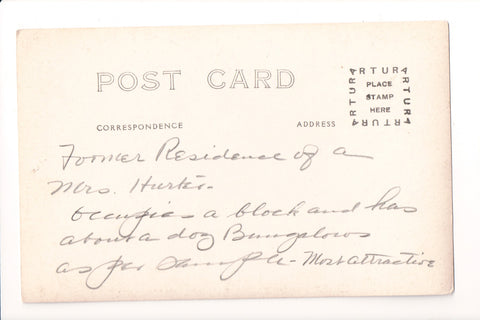 POST CARD
ARTURA
ARTURA
ARTURA
ARTURA
PLACE
STAMP
HERE
CORRESPONDENCE
ADDRESS
Former Residence of a
Mrs. Hurter.
Occupies a block and has
about a doz Bungalows
as per sample - Most attractive